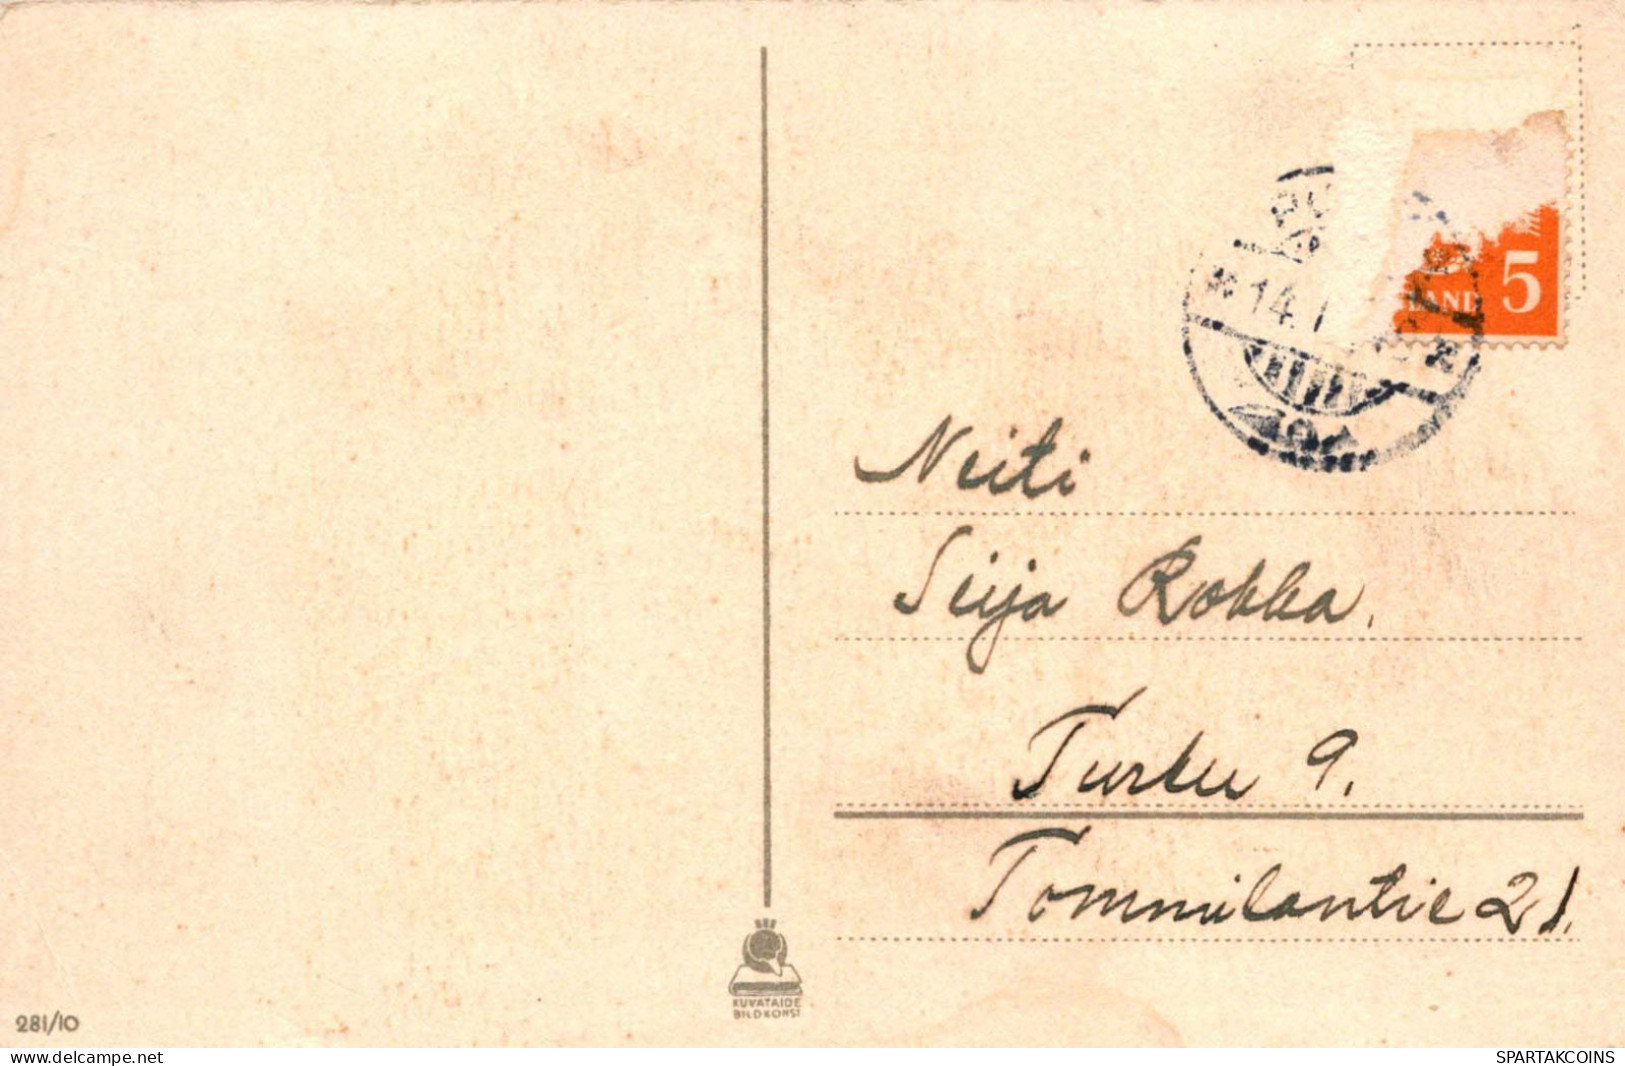 LAND 5
* 14. 1
Neiti
Seija Rokka.
Turku 9.
Tommilantie 21.
KUVATAIDE
BILDKONST
281/10
www.delcampe.net
SPARTAKCOINS